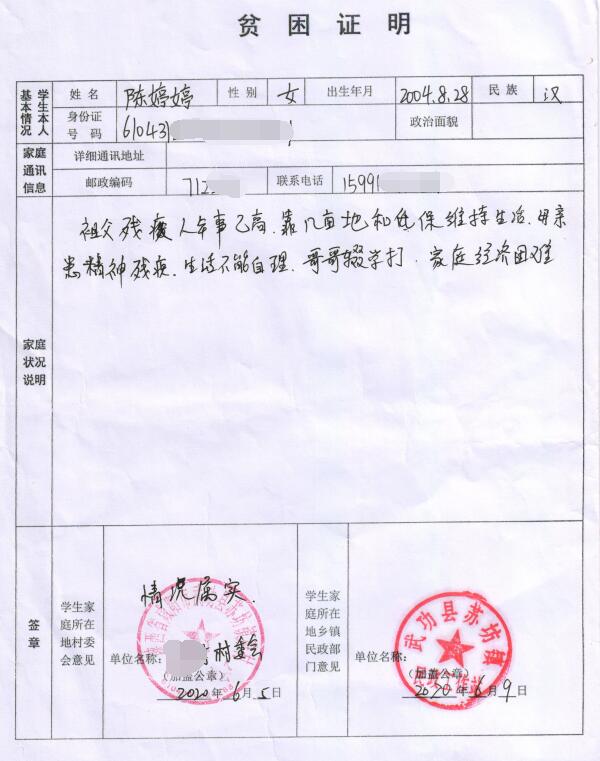 贫困证明
学生本人基本情况
姓名 陈婷婷 性别 女 出生年月 2004.8.28 民族 汉
身份证号码 61043 政治面貌
家庭通讯信息
详细通讯地址
邮政编码 712 联系电话 15991
家庭状况说明
祖父残疾人年事已高.靠几亩地和低保维持生活.母亲
患精神残疾.生活不能自理.哥哥辍学打.家庭经济困难
签章
学生家庭所在地村委会意见
情况属实.
单位名称: 村委会
(加盖公章)
2020年6月5日
学生家庭所在地乡镇民政部门意见
武功县苏坊镇
单位名称:
(加盖公章)
2020年6月9日